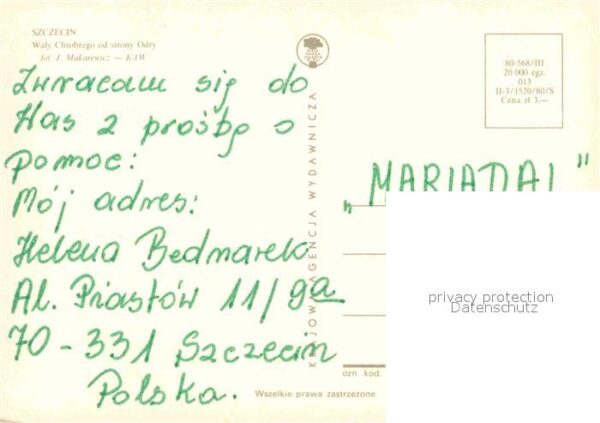 SZCZECIN
Wały Chrobrego od strony Odry
fot. J. Makarewicz — KAW
Zwracam się do
Was z prośbą o
pomoc:
Mój adres:
Helena Bednarek
Al. Piastów 11/9a
70-331 Szczecin
Polska.
KRAJOWA AGENCJA WYDAWNICZA
80-568/III
20 000 egz.
013
H-3/1520/80/S
Cena zł 3.—
"MARIADAL"
privacy protection
Datenschutz
ozn kod.
Wszelkie prawa zastrzeżone